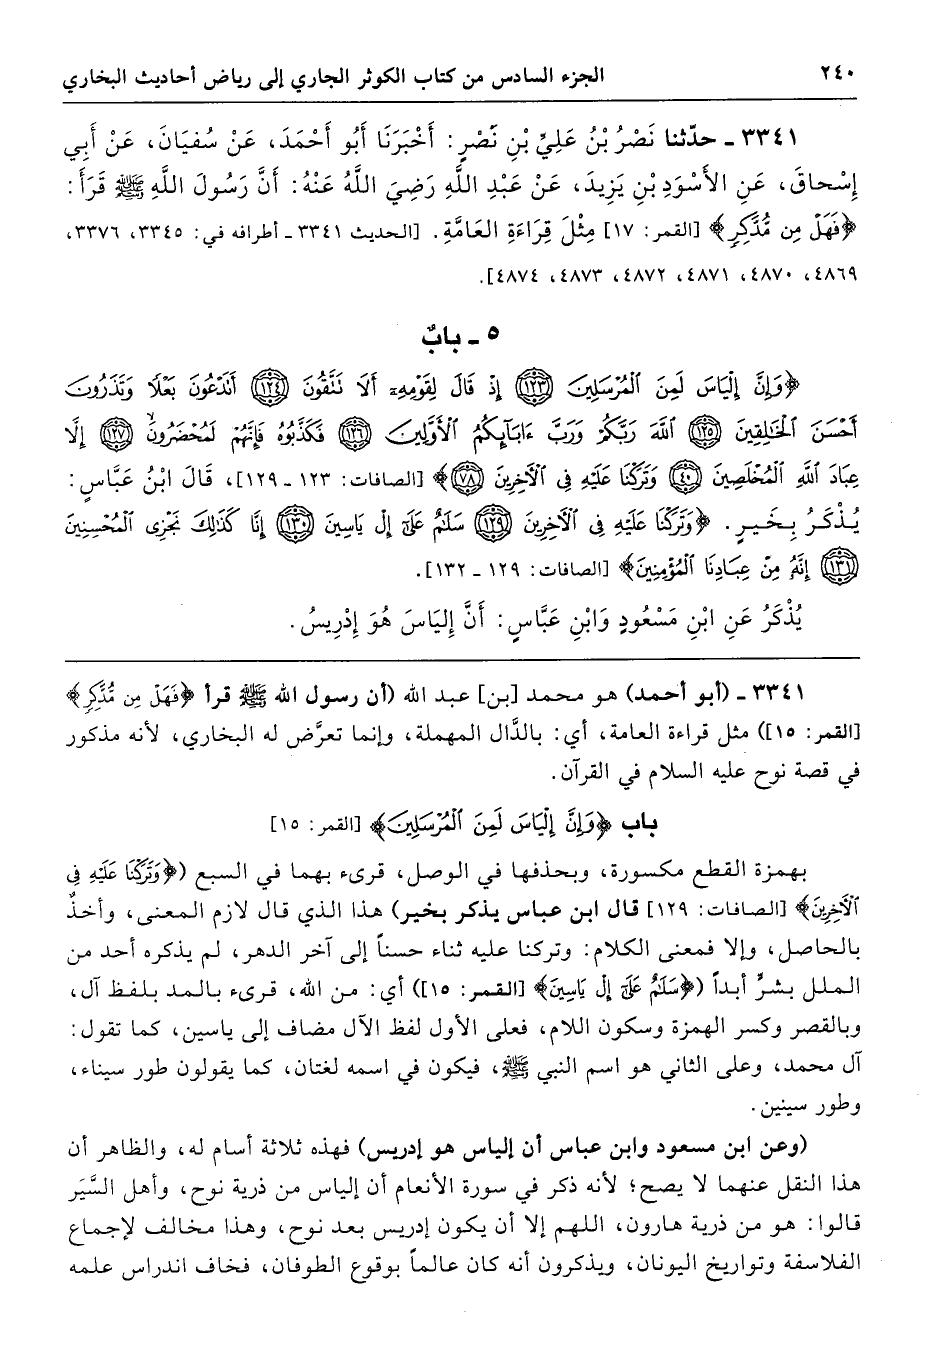 ٢٤٠ الجزء السادس من كتاب الكوثر الجاري إلى رياض أحاديث البخاري
٣٣٤١ ـ حدّثنا نَصْرُ بْنُ عَلِيِّ بْنِ نَصْرٍ: أَخْبَرَنَا أَبُو أَحْمَدَ، عَنْ سُفيَانَ، عَنْ أَبِي
إِسْحاقَ، عَنِ الأَسْوَدِ بْنِ يَزِيدَ، عَنْ عَبْدِ اللَّهِ رَضِيَ اللَّهُ عَنْهُ: أَنَّ رَسُولَ اللَّهِ ﷺ قَرَأَ:
﴿فَهَلْ مِن مُّدَّكِرٍ﴾ [القمر: ١٧] مِثْلَ قِرَاءَةِ العَامَّةِ. [الحديث ٣٣٤١ ـ أطرافه في: ٣٣٤٥، ٣٣٧٦،
٤٨٦٩، ٤٨٧٠، ٤٨٧١، ٤٨٧٢، ٤٨٧٣، ٤٨٧٤].
٥ ـ بابٌ
﴿وَإِنَّ إِلْيَاسَ لَمِنَ ٱلْمُرْسَلِينَ ١٢٣ إِذْ قَالَ لِقَوْمِهِۦٓ أَلَا نَتَّقُونَ ١٢٤ أَنَدْعُونَ بَعْلًا وَتَذَرُونَ
أَحْسَنَ ٱلْخَٰلِقِينَ ١٢٥ ٱللَّهَ رَبَّكُمْ وَرَبَّ ءَابَآئِكُمُ ٱلْأَوَّلِينَ ١٢٦ فَكَذَّبُوهُ فَإِنَّهُمْ لَمُحْضَرُونَ ١٢٧ إِلَّا
عِبَادَ ٱللَّهِ ٱلْمُخْلَصِينَ ٤٠ وَتَرَكْنَا عَلَيْهِ فِى ٱلْآخِرِينَ ٧٨﴾ [الصافات: ١٢٣ ـ ١٢٩]، قَالَ ابْنُ عَبَّاسٍ:
يُذْكَرُ بِخَيرٍ. ﴿وَتَرَكْنَا عَلَيْهِ فِى ٱلْآخِرِينَ ١٢٩ سَلَٰمٌ عَلَىٰٓ إِلْ يَاسِينَ ١٣٠ إِنَّا كَذَٰلِكَ نَجْزِى ٱلْمُحْسِنِينَ
١٣١ إِنَّهُ مِنْ عِبَادِنَا ٱلْمُؤْمِنِينَ﴾ [الصافات: ١٢٩ ـ ١٣٢].
يُذْكَرُ عَنِ ابْنِ مَسْعُودٍ وَابْنِ عَبَّاسٍ: أَنَّ إِليَاسَ هُوَ إِدْرِيسُ.
٣٣٤١ ـ (أبو أحمد) هو محمد [بن] عبد الله (أن رسول الله ﷺ قرأ ﴿فَهَلْ مِن مُّدَّكِرٍ﴾
[القمر: ١٥]) مثل قراءة العامة، أي: بالدَّال المهملة، وإنما تعرَّض له البخاري، لأنه مذكور
في قصة نوح عليه السلام في القرآن.
باب ﴿وَإِنَّ إِلْيَاسَ لَمِنَ ٱلْمُرْسَلِينَ﴾ [القمر: ١٥]
بهمزة القطع مكسورة، وبحذفها في الوصل، قرىء بهما في السبع (﴿وَتَرَكْنَا عَلَيْهِ فِى
ٱلْآخِرِينَ﴾ [الصافات: ١٢٩] قال ابن عباس يذكر بخير) هذا الذي قال لازم المعنى، وأخذٌ
بالحاصل، وإلا فمعنى الكلام: وتركنا عليه ثناء حسناً إلى آخر الدهر، لم يذكره أحد من
الملل بشرٍّ أبداً (﴿سَلَٰمٌ عَلَىٰٓ إِلْ يَاسِينَ﴾ [القمر: ١٥]) أي: من الله، قرىء بالمد بلفظ آل،
وبالقصر وكسر الهمزة وسكون اللام، فعلى الأول لفظ الآل مضاف إلى ياسين، كما تقول:
آل محمد، وعلى الثاني هو اسم النبي ﷺ، فيكون في اسمه لغتان، كما يقولون طور سيناء،
وطور سينين.
(وعن ابن مسعود وابن عباس أن إلياس هو إدريس) فهذه ثلاثة أسام له، والظاهر أن
هذا النقل عنهما لا يصح؛ لأنه ذكر في سورة الأنعام أن إلياس من ذرية نوح، وأهل السَّيَر
قالوا: هو من ذرية هارون، اللهم إلا أن يكون إدريس بعد نوح، وهذا مخالف لإجماع
الفلاسفة وتواريخ اليونان، ويذكرون أنه كان عالماً بوقوع الطوفان، فخاف اندراس علمه